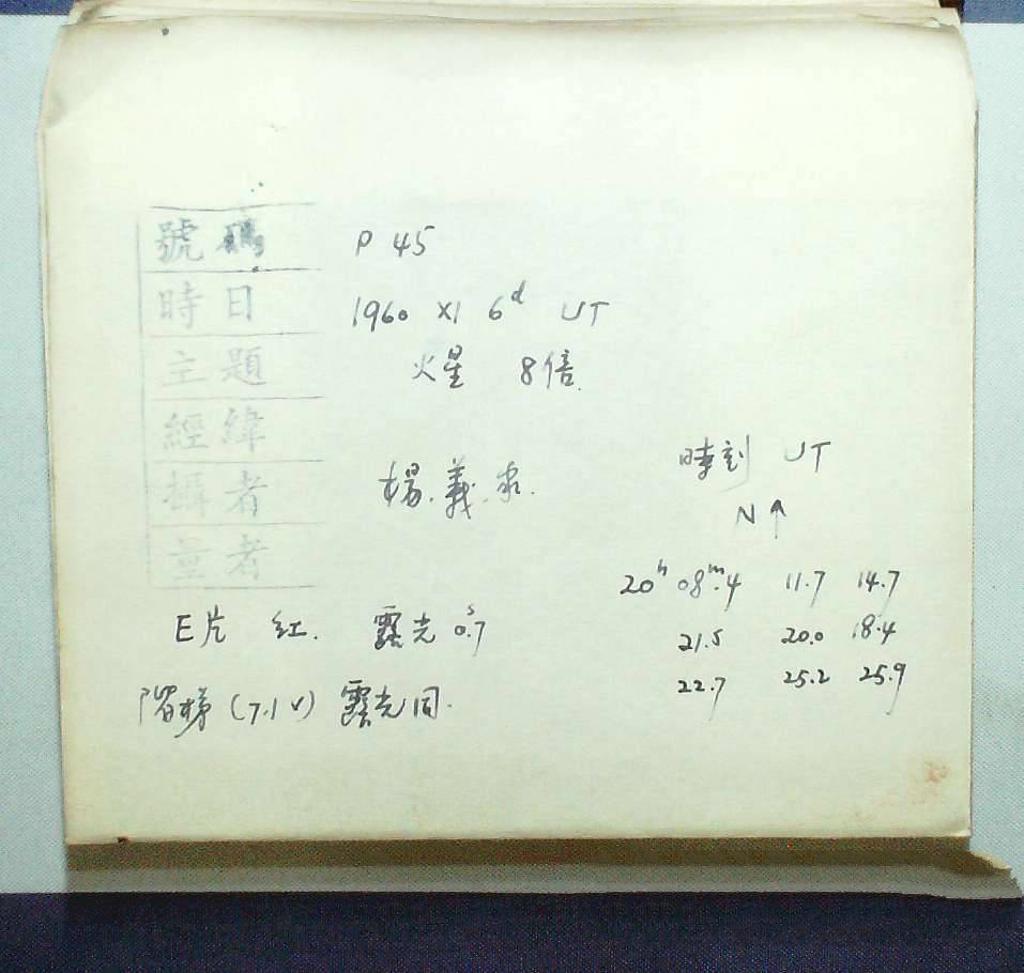 號碼 P 45
時日 1960 XI 6d UT
主題 火星 8倍.
經緯
攝者 楊.義.
量者
時刻 UT
N↑
20h 08m.4 11.7 14.7
21.5 20.0 18.4
22.7 25.2 25.9
E片 紅. 露光 0s.7
階梯 (7.1V) 露光同.